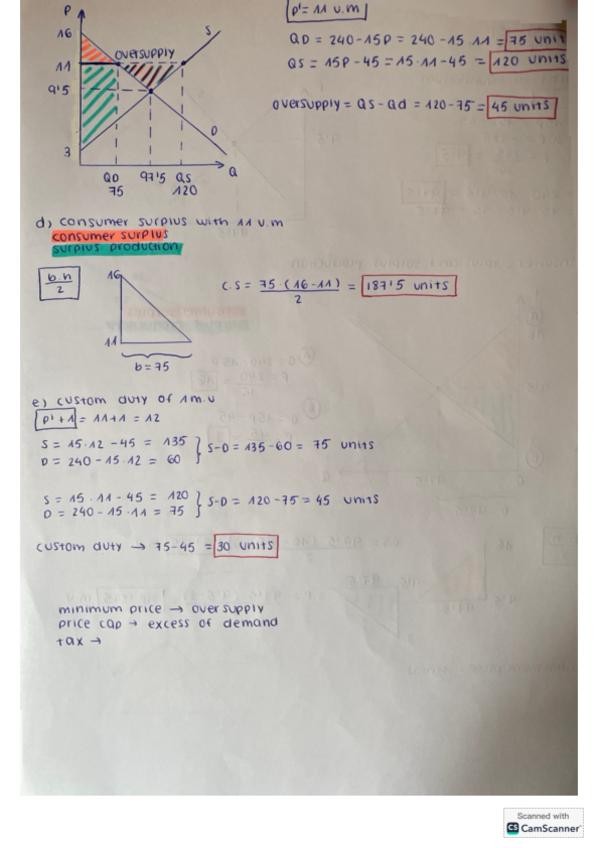 P
16
11
9'5
3
oversupply
S
D
QD 97'5 QS Q
75 120
p' = 11 u.m
QD = 240 - 15P = 240 - 15 · 11 = 75 units
QS = 15P - 45 = 15 · 11 - 45 = 120 units
oversupply = Qs - Qd = 120 - 75 = 45 units
d) consumer surplus with 11 u.m
consumer surplus
surplus production
b.h
2
16
11
b = 75
C.S = 75 · (16 - 11) = 187'5 units
2
e) custom duty of 1 m.u
p' + 1 = 11 + 1 = 12
S = 15 · 12 - 45 = 135
D = 240 - 15 · 12 = 60
S - D = 135 - 60 = 75 units
S = 15 · 11 - 45 = 120
D = 240 - 15 · 11 = 75
S - D = 120 - 75 = 45 units
custom duty → 75 - 45 = 30 units
minimum price → oversupply
price cap → excess of demand
tax →
Scanned with
CS CamScanner